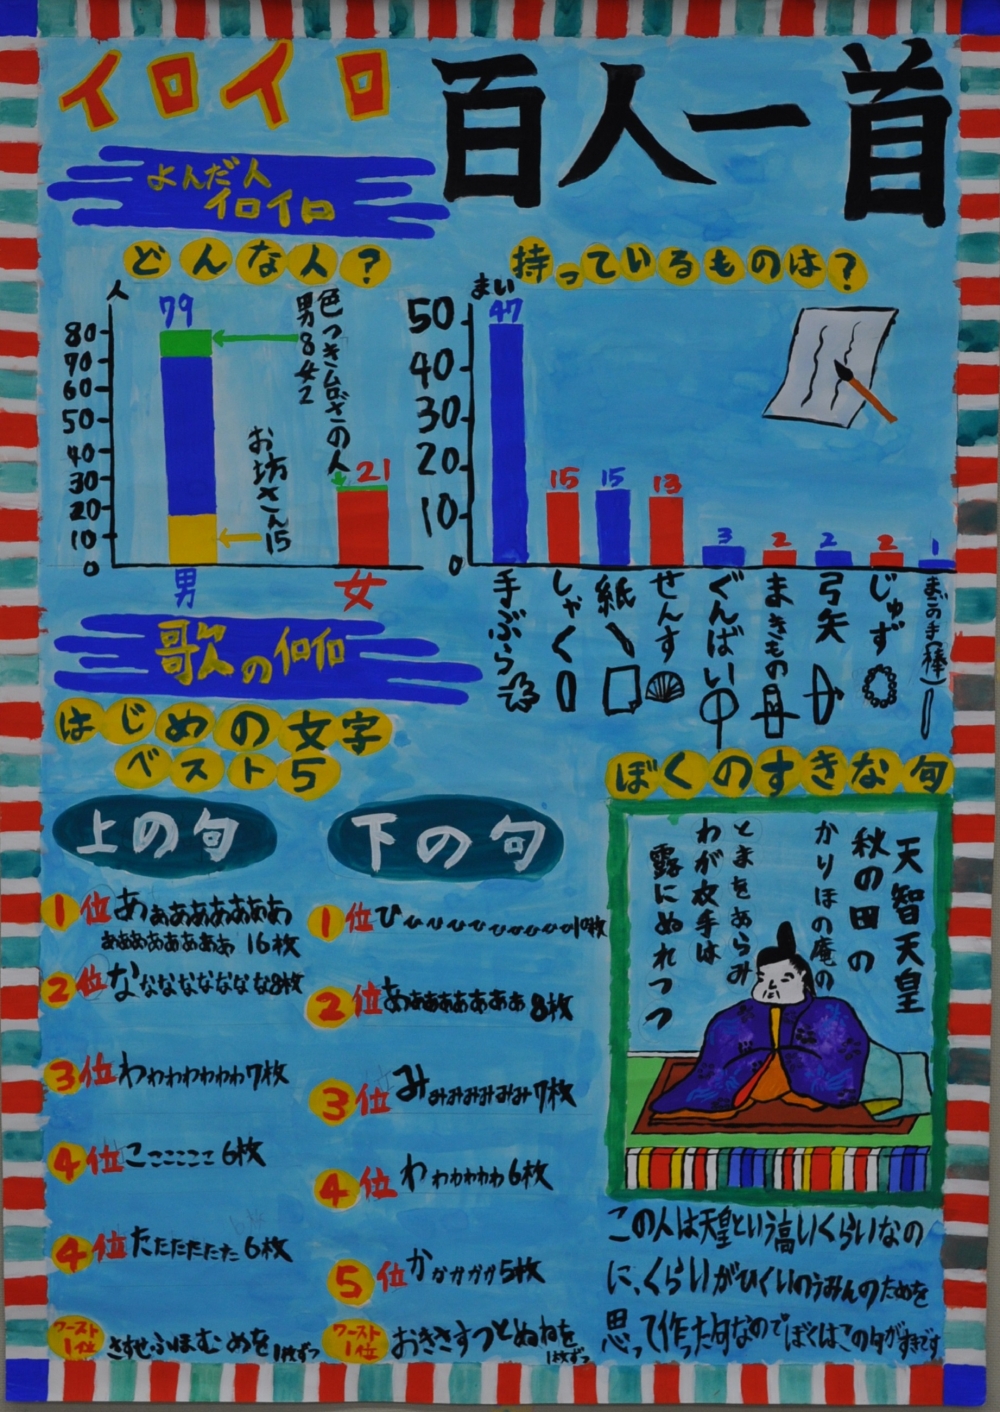 イロイロ
百人一首
よんだ人
イロイロ
どんな人?
人
79
80
70
60
50
40
30
20
10
0
色つきムざさの人
男8女2
お坊さん
15
21
男
女
持っているものは?
まい
50
40
30
20
10
0
47
15
15
13
3
2
2
2
1
手ぶら
しゃく
紙
せんす
ぐんばい
まきもの
弓矢
じゅず
歌のイロイロ
はじめの文字
ベスト5
上の句
1位 あぁああああああ
ああああああああ 16枚
2位 なななななななな8枚
3位 わわわわわわわ7枚
4位 ここここここ 6枚
4位 たたたたたた 6枚
ワースト1位 さすせふほむめを1枚ずつ
下の句
1位 ひひひひひひひひひひ10枚
2位 ああああああああ 8枚
3位 みみみみみみみ7枚
4位 わわわわわわ6枚
5位 かかかかか5枚
ワースト1位 おきさすつとぬねを1枚ずつ
ぼくのすきな句
天智天皇
秋の田の
かりほの庵の
とまをあらみ
わが衣手は
露にぬれつつ
この人は天皇という高いくらいなの
に、くらいがひくいのうみんのためを
思って作った句なのでぼくはこの句がすきです